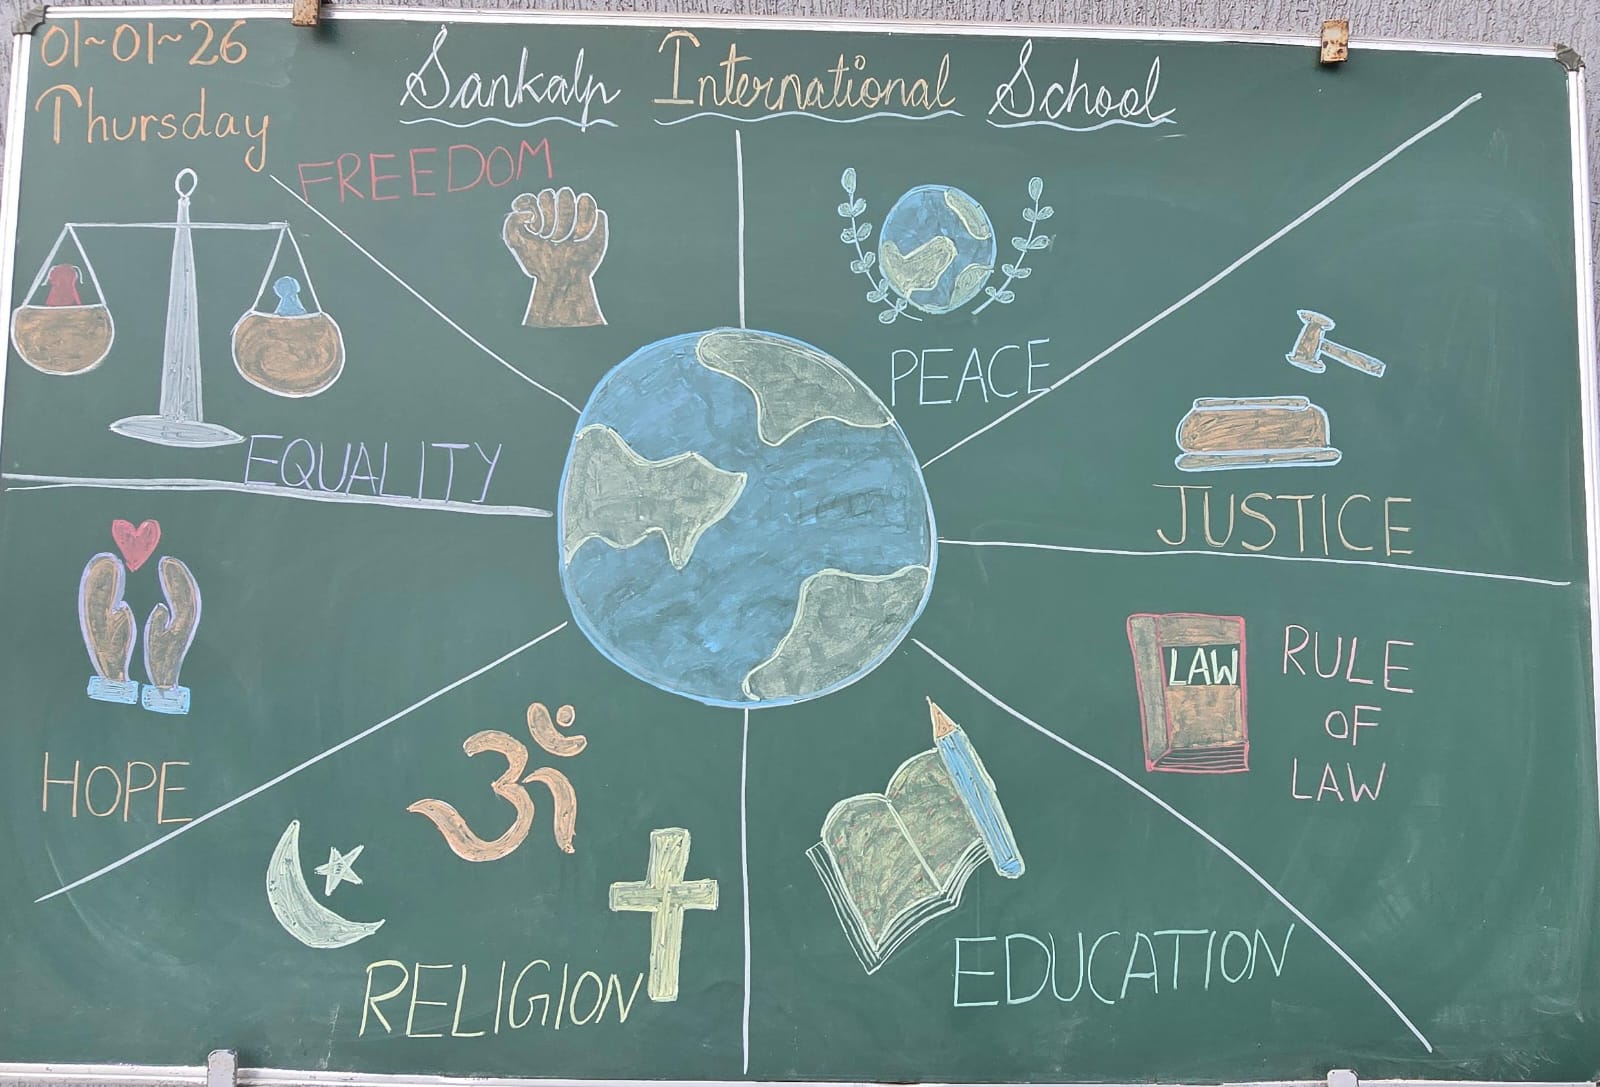 01~01~26
Thursday
Sankalp International School
FREEDOM
PEACE
EQUALITY
JUSTICE
HOPE
LAW
RULE
OF
LAW
RELIGION
EDUCATION